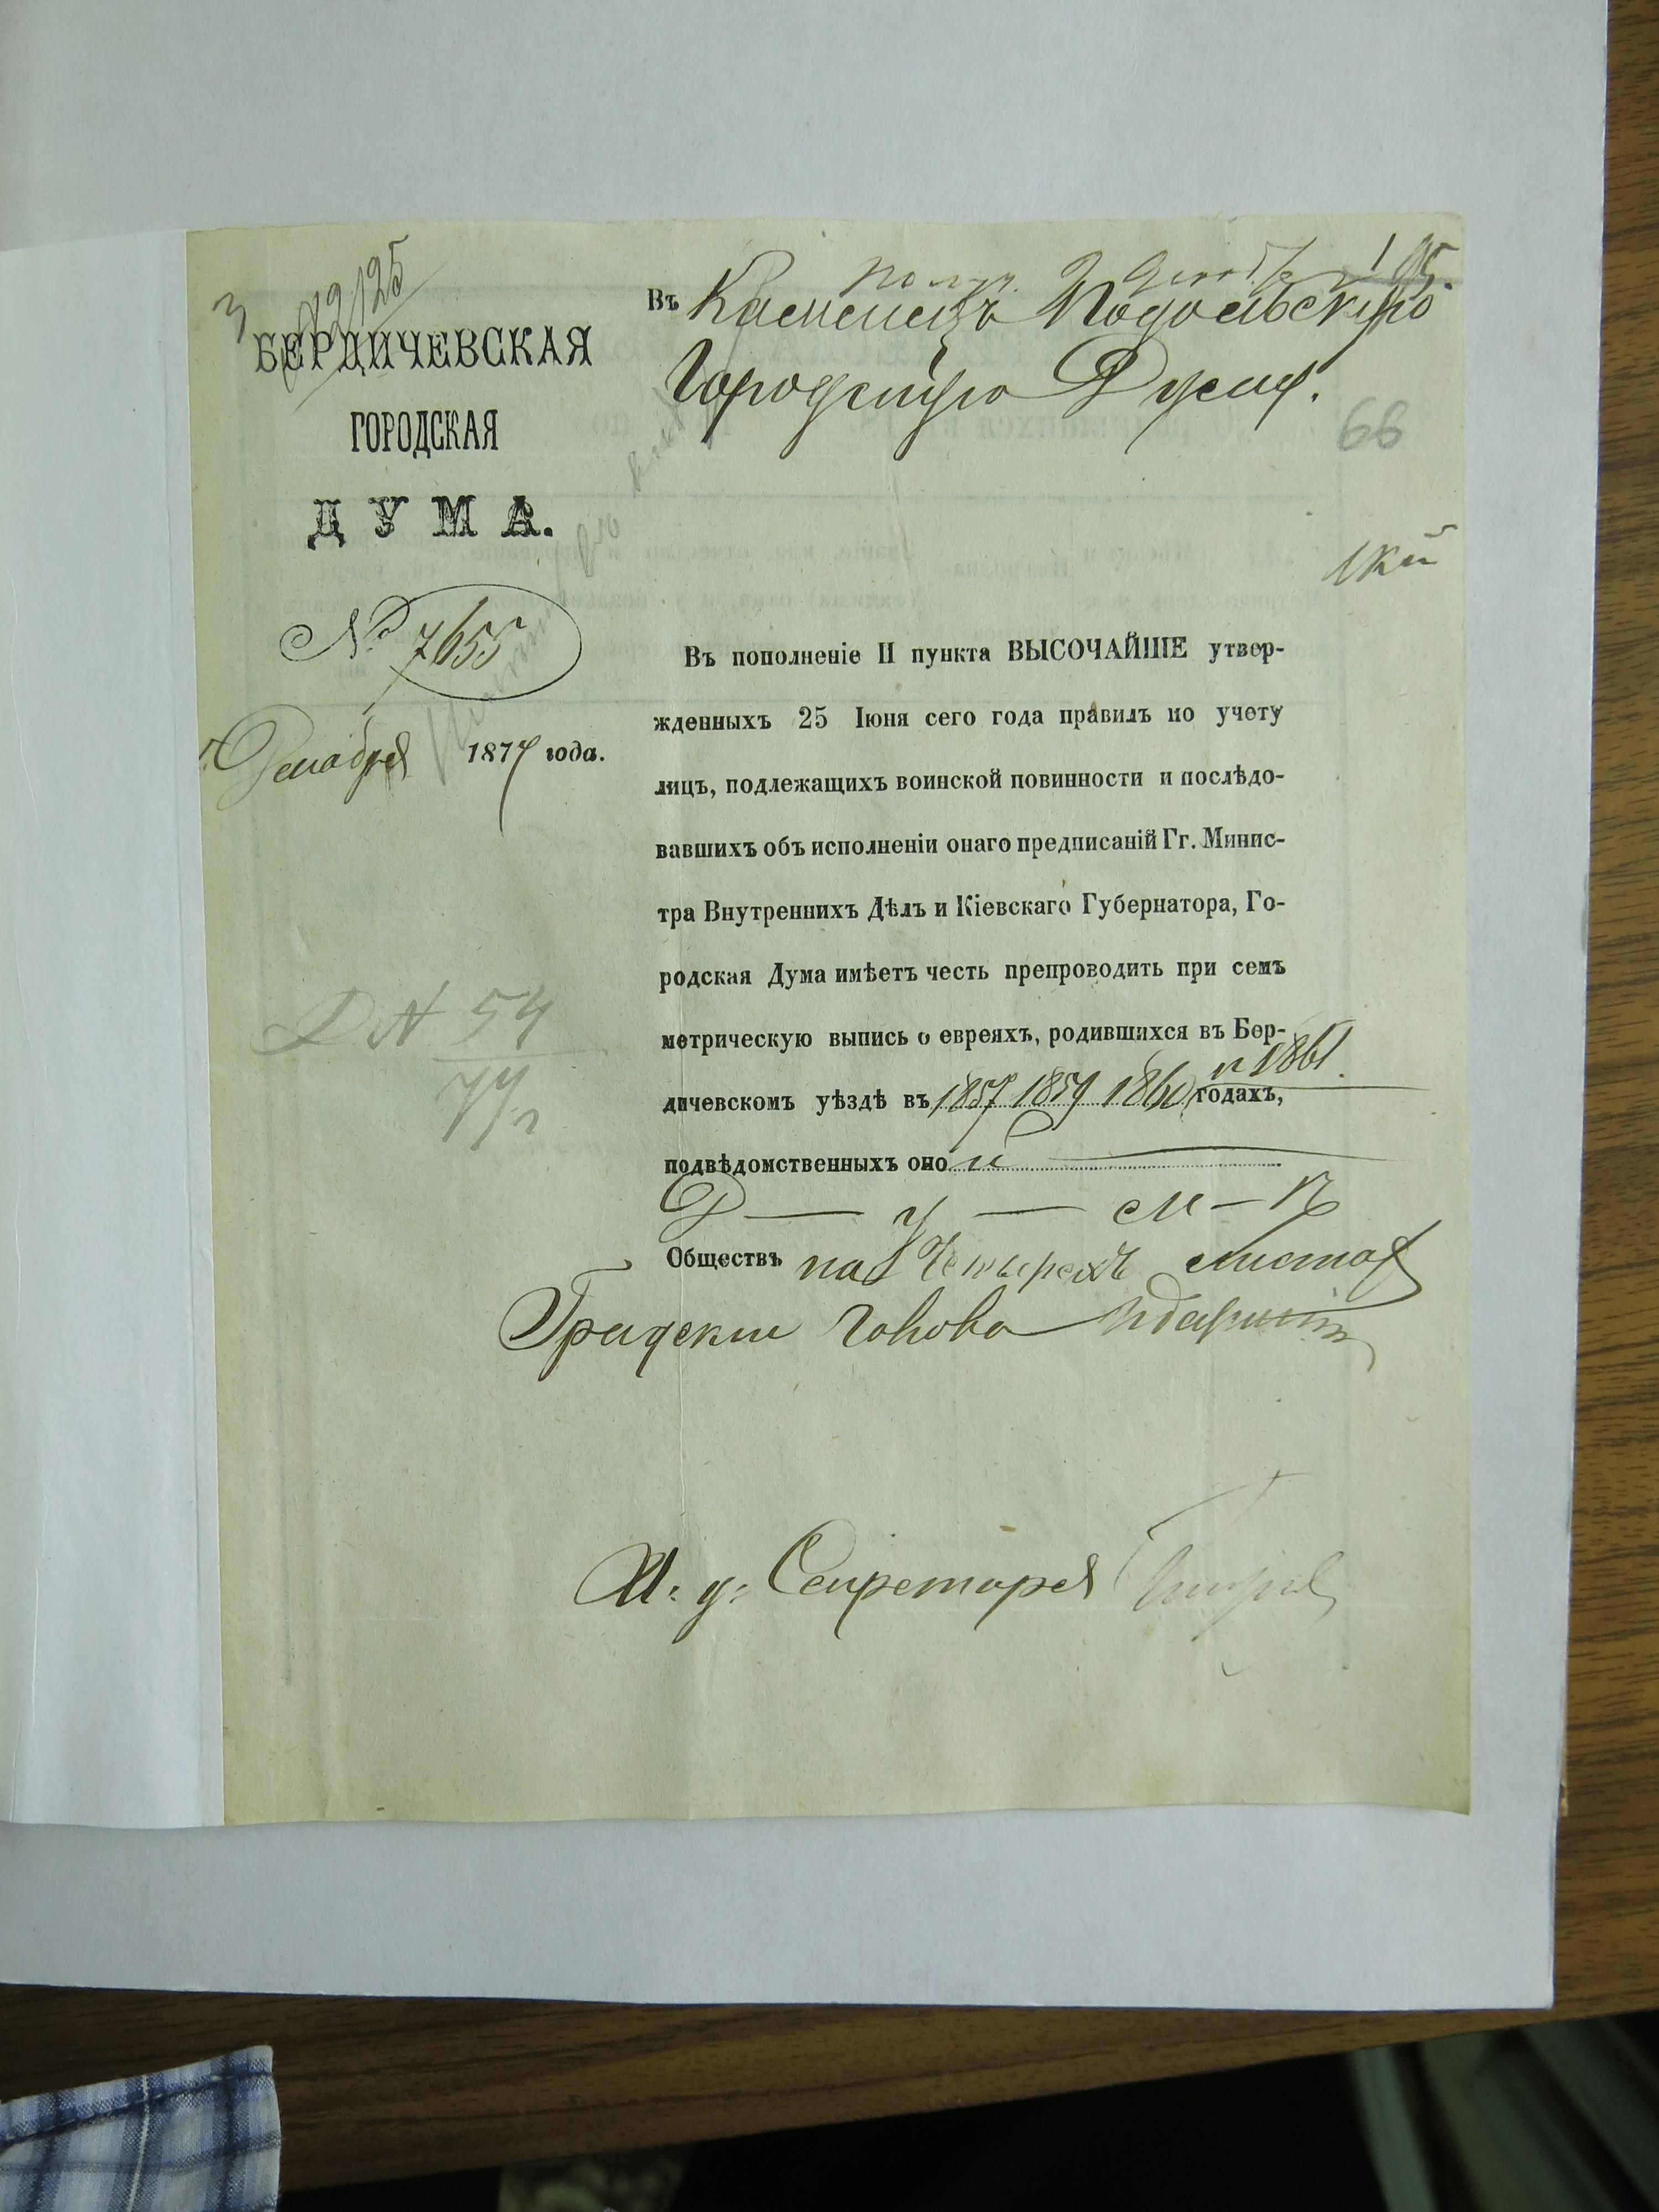 3
12125
БЕРДИЧЕВСКАЯ
ГОРОДСКАЯ
ДУМА.
№ 7655
Декабря 1877 года.
Д № 54
77 г
195
Въ Каменецъ Подольскую
Городскую Думу.
66
Въ пополненіе II пункта ВЫСОЧАЙШЕ утвер-
жденныхъ 25 Іюня сего года правилъ по учету
лицъ, подлежащихъ воинской повинности и послѣдо-
вавшихъ объ исполненіи онаго предписаній Гг. Минис-
тра Внутреннихъ Дѣлъ и Кіевскаго Губернатора, Го-
родская Дума имѣетъ честь препроводить при семъ
метрическую выпись о евреяхъ, родившихся въ Бер-
дичевскомъ уѣздѣ въ 1857 1859 1860 и 1861 годахъ,
подвѣдомственныхъ оно й
Д — у — м — ѣ
Обществъ на Четырехъ листах
Градскій Голова
И. д. Секретаря